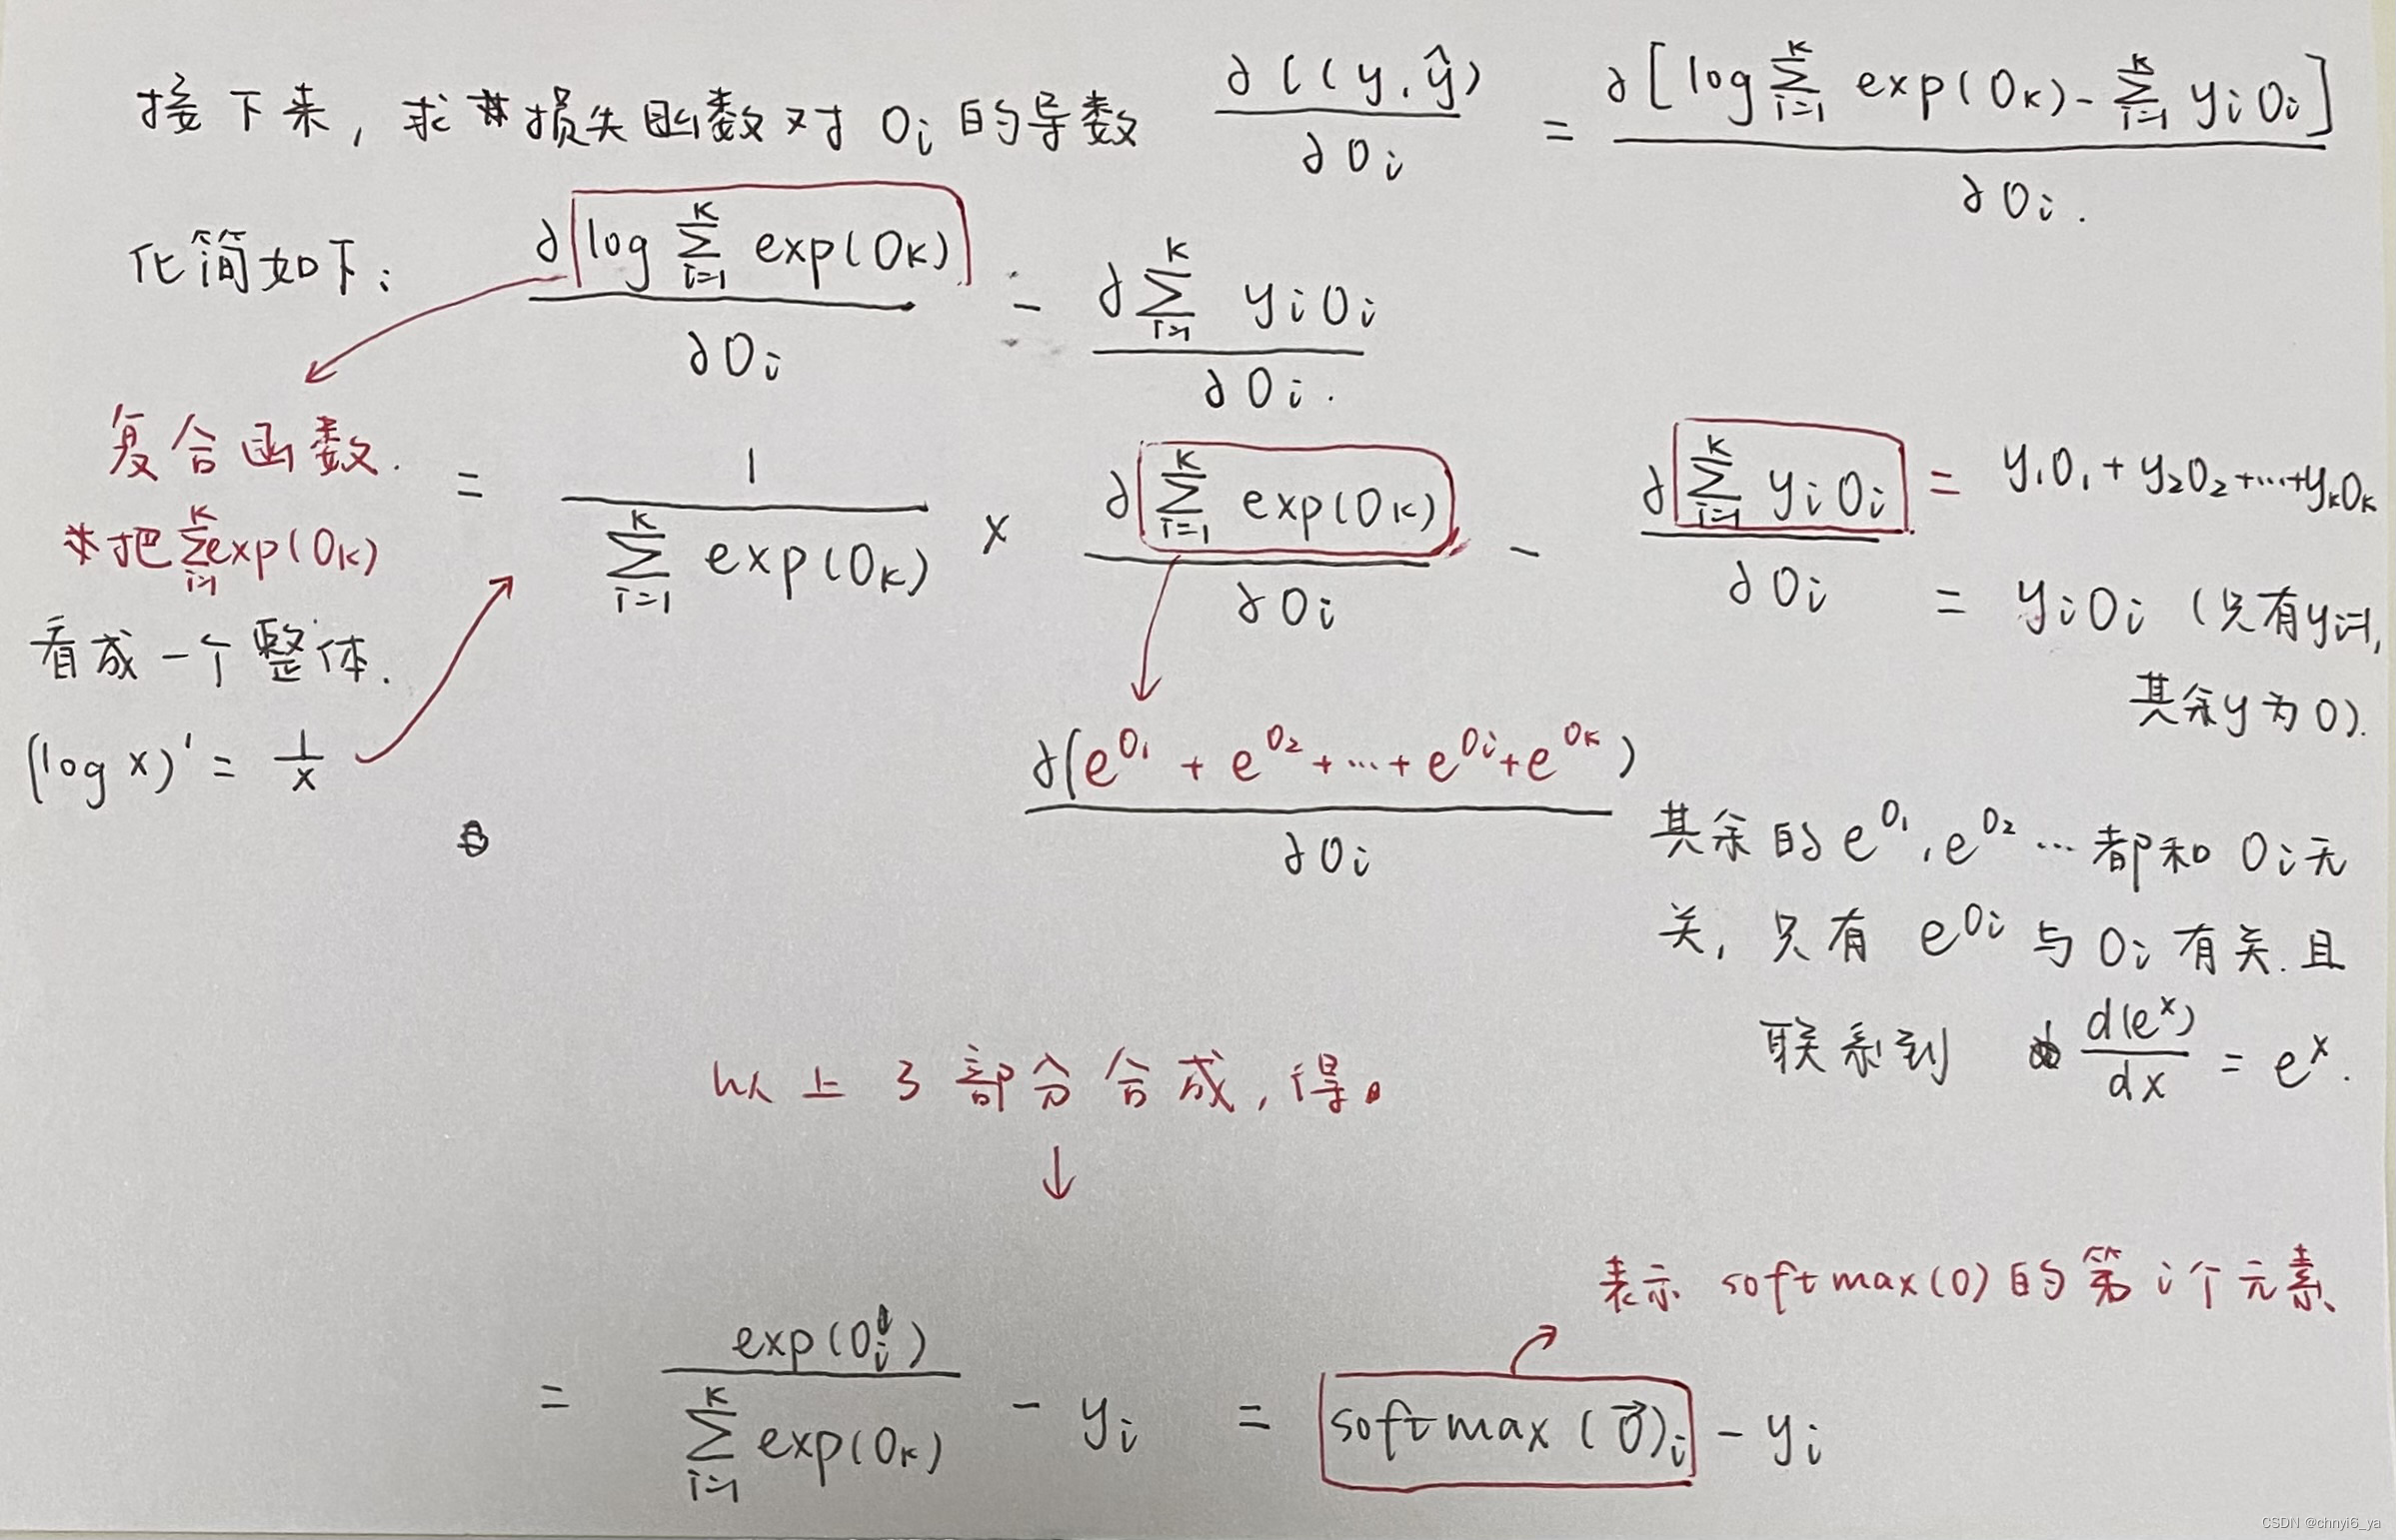 接下来，求损失函数对 Oi 的导数 ∂l(y,ŷ)/∂Oi = ∂[log∑_{i=1}^{K} exp(OK) - ∑_{i=1}^{K} yiOi]/∂Oi.
化简如下: ∂log∑_{i=1}^{K} exp(OK)/∂Oi - ∂∑_{i=1}^{K} yiOi/∂Oi.
复合函数.
把∑_{i=1}^{K}exp(OK)
看成一个整体.
(log x)' = 1/x
= 1/∑_{i=1}^{K} exp(OK) × ∂∑_{i=1}^{K} exp(OK)/∂Oi - ∂∑_{i=1}^{K} yiOi/∂Oi
= y1O1+y2O2+…+ykOk
= yiOi (只有yi=1,
其余y为0).
∂(e^{O1} + e^{O2} +…+ e^{Oi}+e^{OK})/∂Oi
其余的 e^{O1}, e^{O2} … 都和 Oi无
关, 只有 e^{Oi} 与 Oi 有关. 且
联系到 d(e^x)/dx = e^x.
以上 3 部分合成, 得.
↓
表示 softmax(O)的第i个元素
= exp(Oi)/∑_{i=1}^{K} exp(OK) - yi = softmax(O⃗)i - yi
CSDN @chnyi6_ya